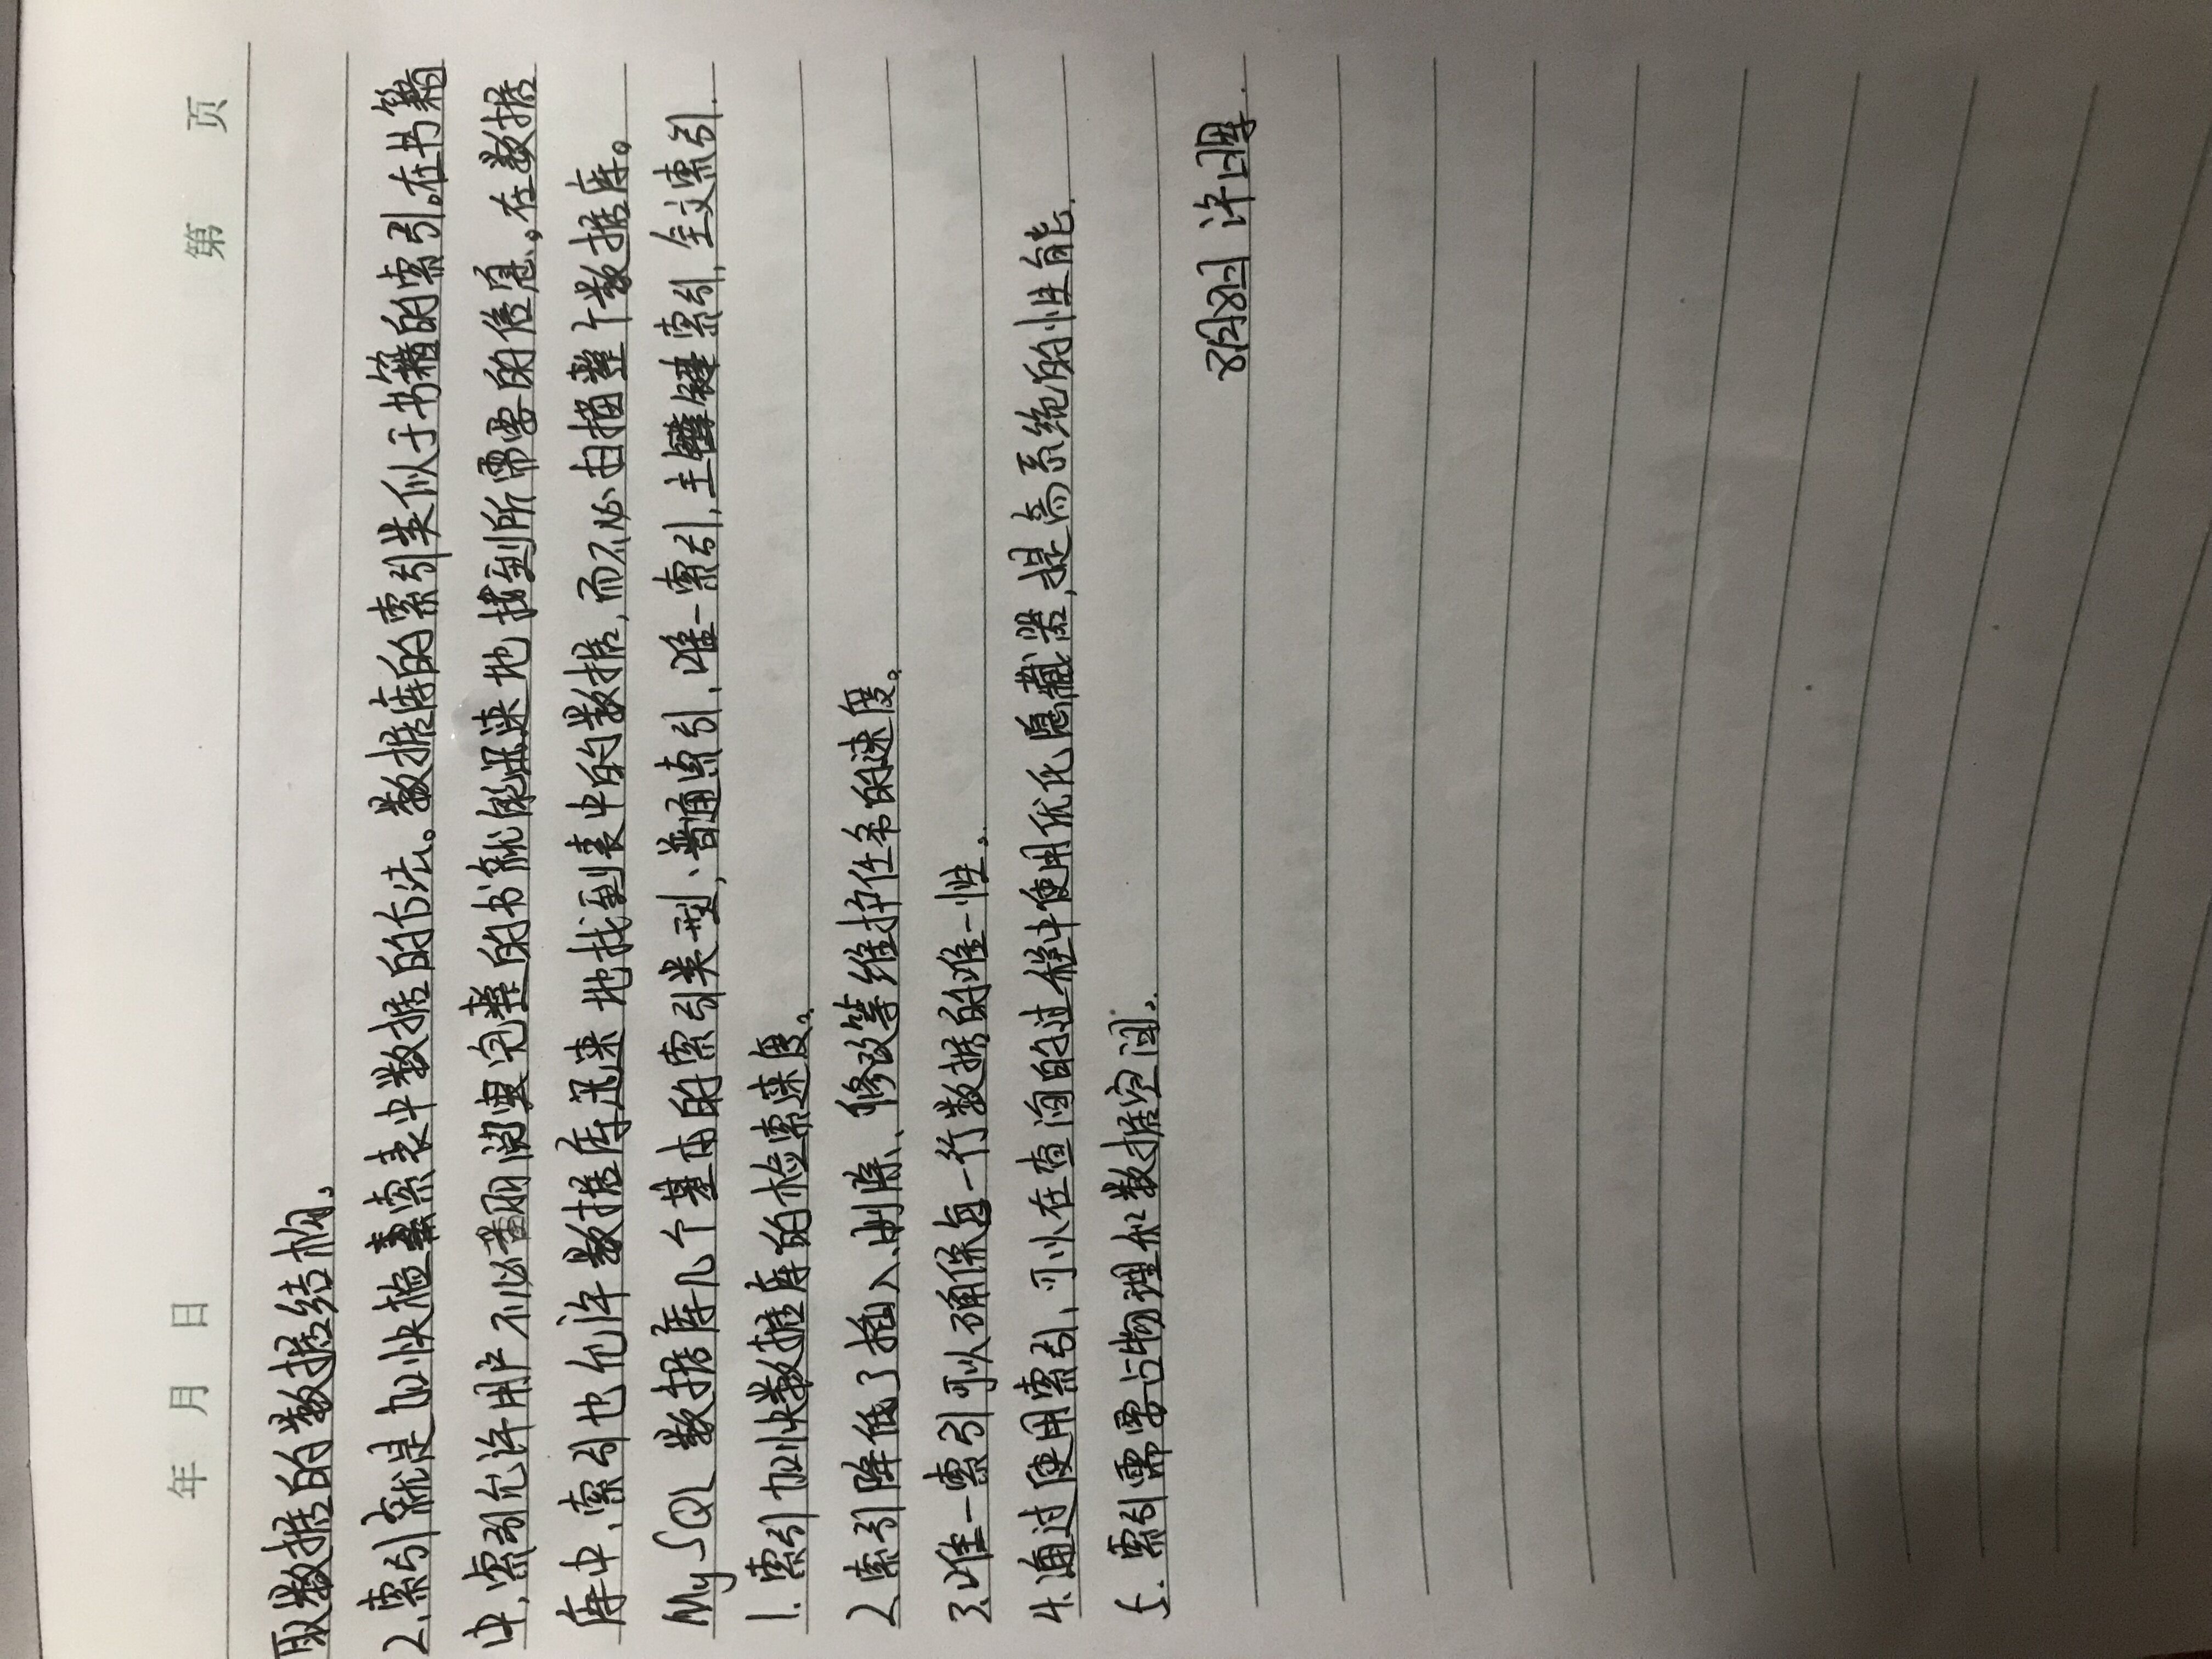 年 月 日 第 页
取数据的数据结构。
2.索引就是加快检索表中数据的方法。数据库的索引类似于书籍的索引。在书籍
中,索引允许用户不必翻阅完整的书就能迅速地找到所需要的信息。在数据
库中,索引也允许数据库迅速地找到表中的数据,而不必扫描整个数据库。
MySQL 数据库几个基本的索引类型:普通索引,唯一索引,主键索引,全文索引.
1.索引加快数据库的检索速度。
2.索引降低了插入、删除、修改等维护任务的速度。
3.唯一索引可以确保每一行数据的唯一性。
4.通过使用索引,可以在查询的过程中使用优化隐藏器,提高系统的性能.
5.索引需要占物理和数据空间。
8月8日 许